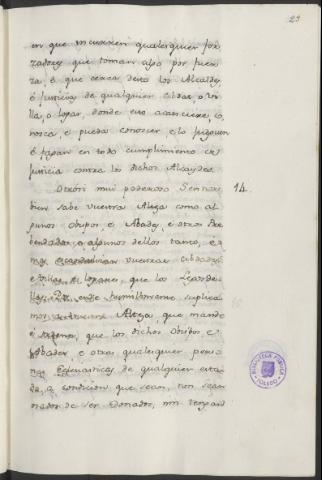 23
en que incurren qualesquier for
zadores que toman algo por fuer
za, e que cerca desto los Alcaldes
é Justicias de qualquier cibdad, o Vi
lla, o logar, donde esto acaesciere, co
nosca, e puedan conoscer e lo judguen
é fagan en todo cumplimiento de
Justicia contra los dichos Alcaydes.
14.
Otrosi mui poderoso Sennor,
bien sabe vuestra Alteza como al
gunos Obispos e Abades, e otros Pre
bendados, a algunos dellos tanto, e
mas vuestras cibdades
e Villas, e logares, que los
ende humilmente suplica
mos a vuestra Alteza, que mande
é ordene, que los dichos Obispos, e
Abades, e otras qualesquier perso
nas Eclesiasticas de qualquier esta
do, o condicion que sean, non sean
osados de ser Donados, nin tengan
BIBLIOTECA PÚBLICA
TOLEDO